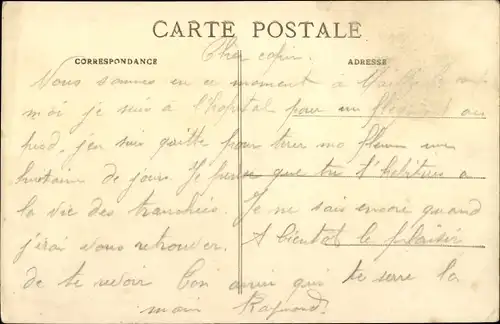 CARTE POSTALE
CORRESPONDANCE
ADRESSE
Cher copin.
Nous sommes en ce moment à
moi je suis à l'hopital pour un au
pied, j'en suis quitte pour tirer ma flemme une
huitaine de jours. Je pense que tu t'habitues a
la vie des tranchées. Je ne sais encore quand
j'irai vous retrouver. A bientot le plaisir
de te revoir Ton ami qui te serre la
main Raymond.